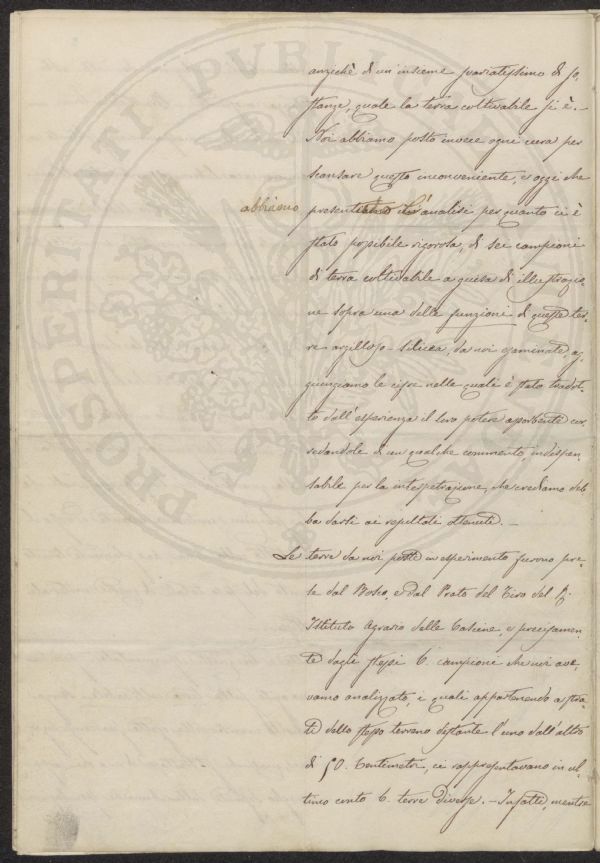 PROSPERITATI PVBLICAE
anzichè di un'insieme svariatissimo di so,
stanze, quale la terra coltivabile si è. —
Noi abbiamo posto invece ogni cura per
scansare questo inconveniente, e oggi che
abbiamo
presentiamo l'analisi per quanto ci è
stato possibile rigorosa, di sei campioni
di terra coltivabile a guisa di illustrazio,
ne sopra una delle funzioni di queste ter,
re argilloso-silicea, da noi esaminate, ag,
giungiamo le cifre nelle quali è stato tradot,
to dall'esperienza il loro potere assorbente cor,
redandole di un qualche commento, indispen,
sabile per la interpetrazione, che crediamo deb
ba darsi ai resultati ottenuti. —
Le terre da noi poste in esperimento furono pre,
se dal Bosco, e dal Prato del Tiro del R.
Istituto Agrario delle Cascine, e precisamen,
te dagli stessi 6. campioni che noi ave,
vamo analizzato, i quali appartenendo a stra,
ti dello stesso terreno distante l'uno dall'altro
di 50. Centimetri, ci rappresentavano in ul,
timo conto 6. terre diverse. — Infatti, mentre